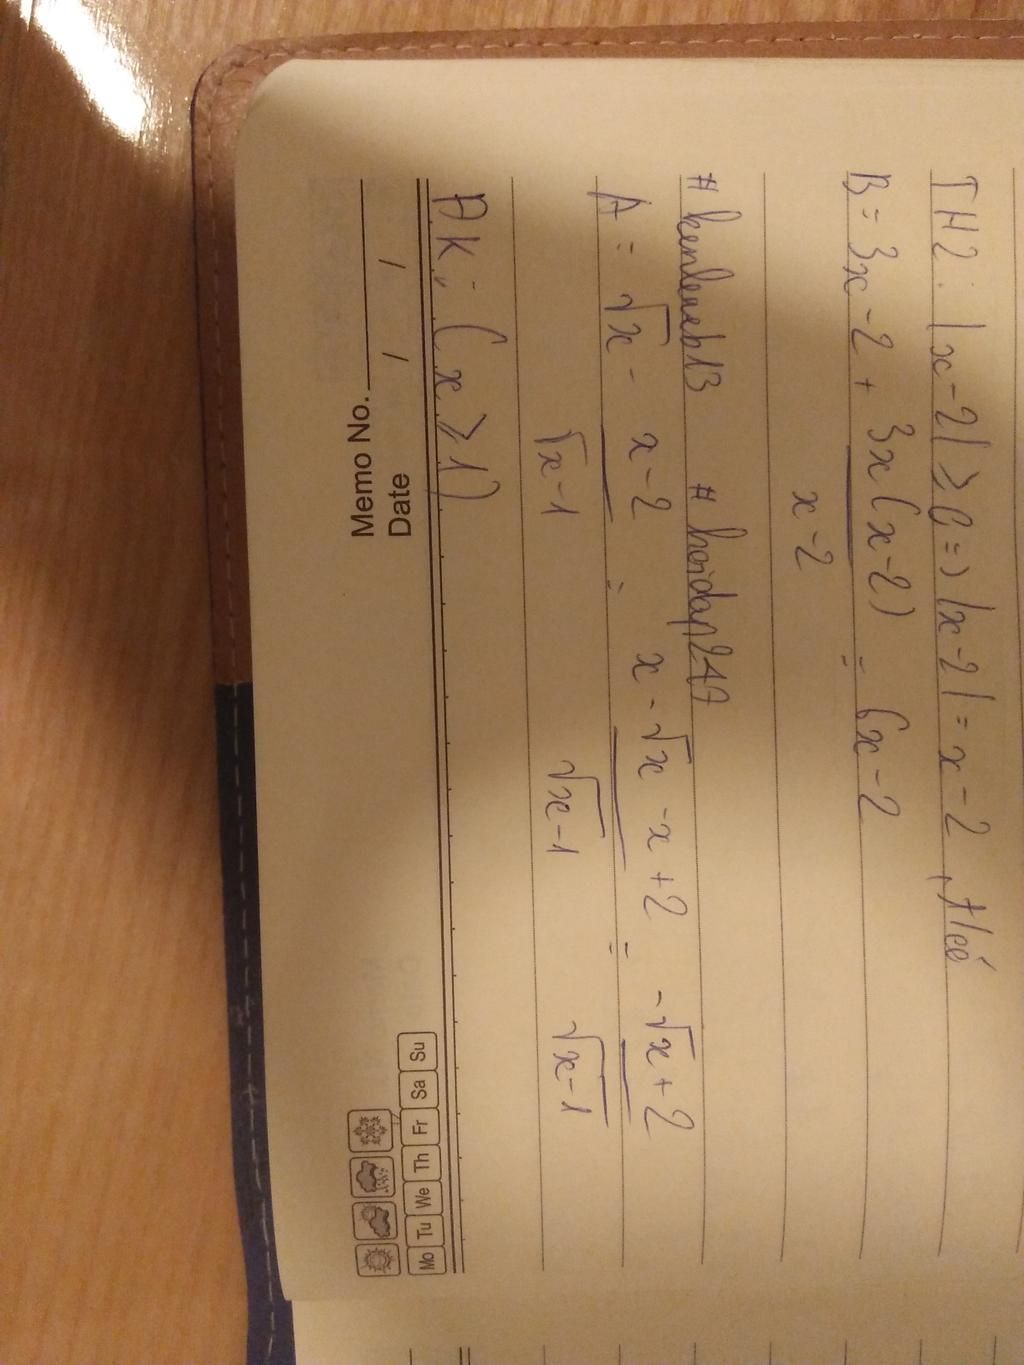 TH2: |x-2| ≥ 0 => |x-2| = x-2, ta có
B = 3x-2 + 3x(x-2) / x-2 = 6x-2
#hoidap247
A = √x - x-2 / √x-1 = x-√x-x+2 / √x-1 = -√x+2 / √x-1
ĐK: (x ≥ 1)
Memo No.
Date / /
Mo Tu We Th Fr Sa Su